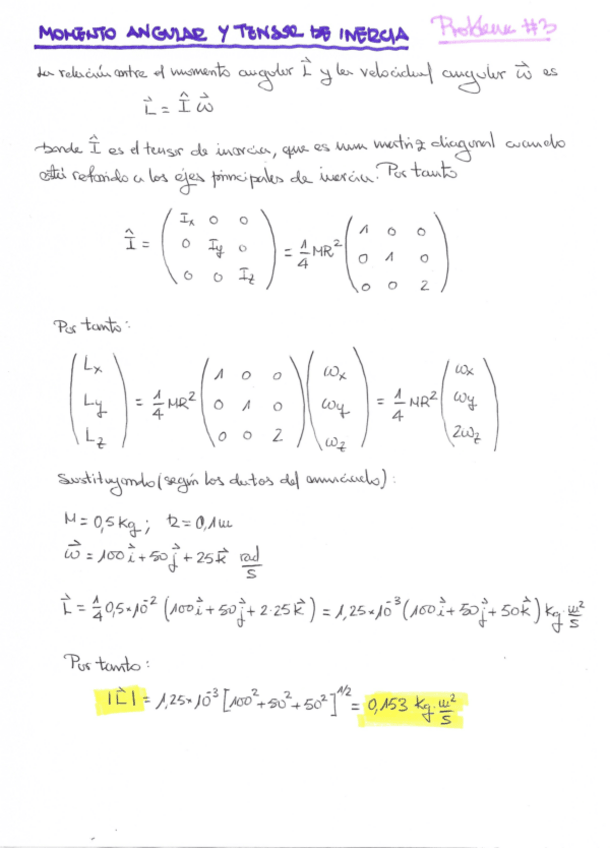 MOMENTO ANGULAR Y TENSOR DE INERCIA Problema #3
La relación entre el momento angular L⃗ y la velocidad angular ω⃗ es
L⃗ = Î ω⃗
donde Î es el tensor de inercia, que es una matriz diagonal cuando
está referido a los ejes principales de inercia. Por tanto
Î = (Ix 0 0; 0 Iy 0; 0 0 Iz) = 1/4 MR² (1 0 0; 0 1 0; 0 0 2)
Por tanto:
(Lx; Ly; Lz) = 1/4 MR² (1 0 0; 0 1 0; 0 0 2) (ωx; ωy; ωz) = 1/4 MR² (ωx; ωy; 2ωz)
Sustituyendo (según los datos del enunciado):
M = 0,5 kg; R = 0,1 m
ω⃗ = 100 i⃗ + 50 j⃗ + 25 k⃗ rad/s
L⃗ = 1/4 0,5×10⁻² (100 i⃗ + 50 j⃗ + 2·25 k⃗) = 1,25×10⁻³ (100 i⃗ + 50 j⃗ + 50 k⃗) kg·m²/s
Por tanto:
|L⃗| = 1,25×10⁻³ [100² + 50² + 50²]^1/2 = 0,153 kg·m²/s